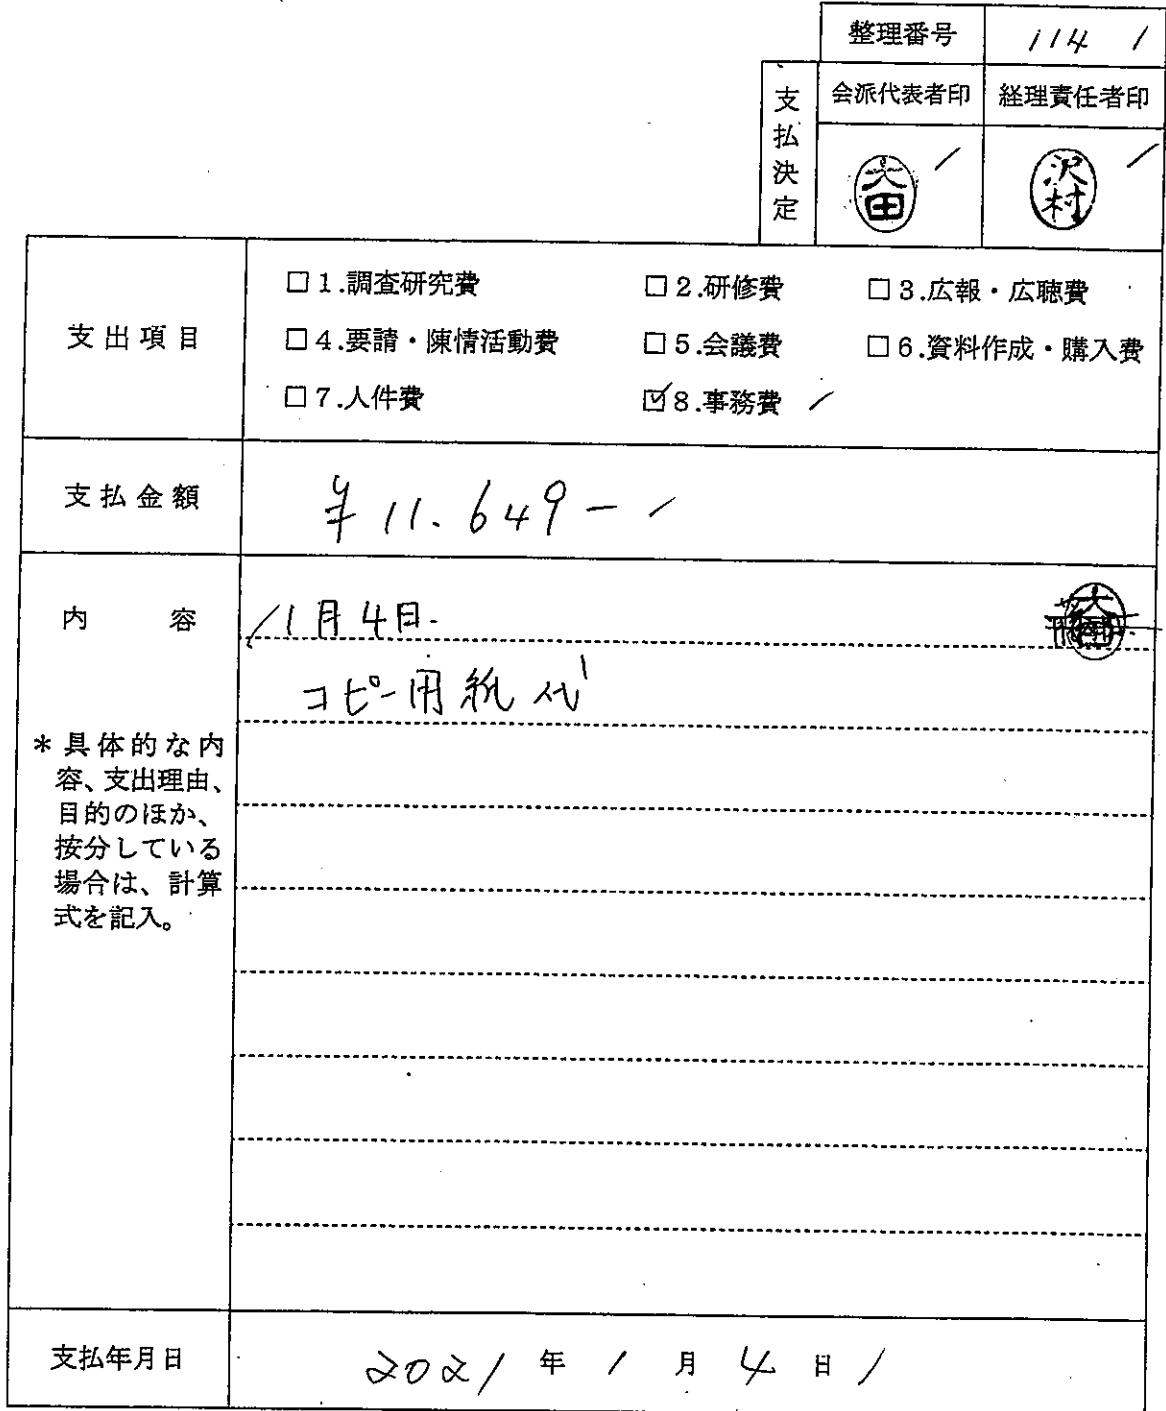 整理番号 114
支払決定 会派代表者印 経理責任者印
大田 沢村
支出項目
□1.調査研究費 □2.研修費 □3.広報・広聴費
□4.要請・陳情活動費 □5.会議費 □6.資料作成・購入費
□7.人件費 ☑8.事務費
支払金額 ¥11.649-
内容 1月4日.
コピー用紙代
*具体的な内
容、支出理由、
目的のほか、
按分している
場合は、計算
式を記入。
支払年月日 2021年1月4日